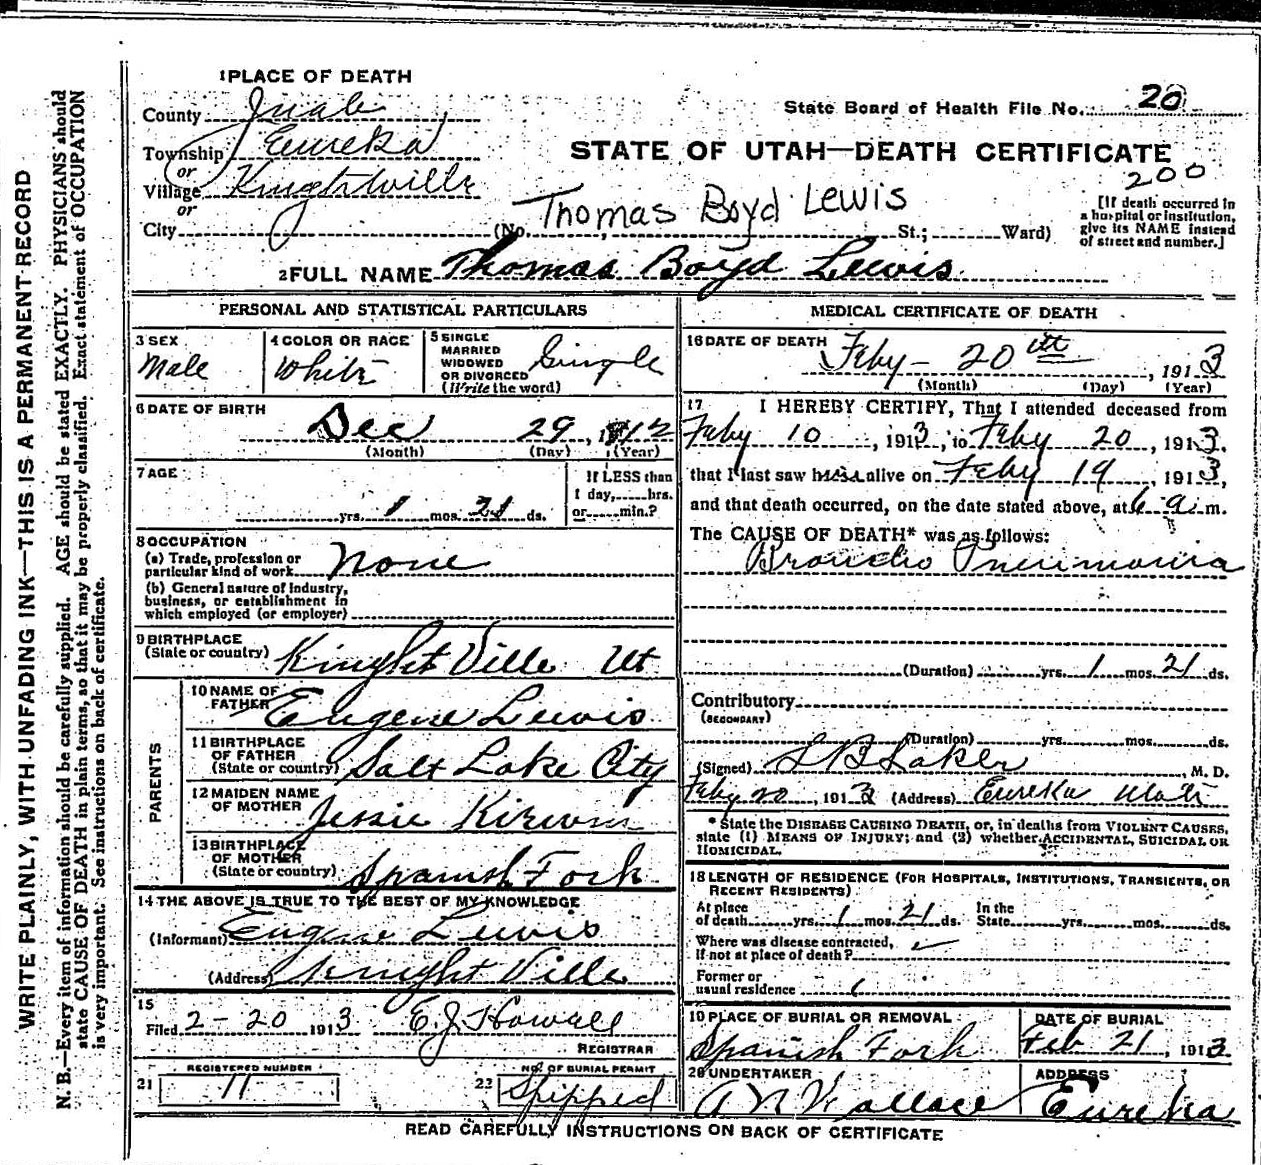 1 PLACE OF DEATH
County Juab
State Board of Health File No. 20
Township Eureka
or
Village Knightville
or
City
STATE OF UTAH—DEATH CERTIFICATE
200
Thomas Boyd Lewis
(No. St.; Ward)
[If death occurred in
a hospital or institution,
give its NAME instead
of street and number.]
2 FULL NAME Thomas Boyd Lewis
PERSONAL AND STATISTICAL PARTICULARS
3 SEX
Male
4 COLOR OR RACE
White
5 SINGLE
MARRIED
WIDOWED
OR DIVORCED
(Write the word)
Single
6 DATE OF BIRTH
Dec 29, 1912
(Month) (Day) (Year)
7 AGE
yrs. 1 mos. 21 ds.
If LESS than
1 day, hrs.
or min.?
8 OCCUPATION
(a) Trade, profession or
particular kind of work None
(b) General nature of industry,
business, or establishment in
which employed (or employer)
9 BIRTHPLACE
(State or country) Kinght Ville Ut
PARENTS
10 NAME OF
FATHER Eugene Lewis
11 BIRTHPLACE
OF FATHER
(State or country) Salt Lake City
12 MAIDEN NAME
OF MOTHER Jessie
13 BIRTHPLACE
OF MOTHER
(State or country) Spanish Fork
14 THE ABOVE IS TRUE TO THE BEST OF MY KNOWLEDGE
(Informant) Eugene Lewis
(Address) Knight Ville
15
Filed 2-20 1913 E.J. Howell
REGISTRAR
21
REGISTERED NUMBER
11
22
NO. OF BURIAL PERMIT
Shipped
MEDICAL CERTIFICATE OF DEATH
16 DATE OF DEATH
Feby - 20th, 1913
(Month) (Day) (Year)
17 I HEREBY CERTIFY, That I attended deceased from
Feby 10, 1913, to Feby 20, 1913.
that I last saw him alive on Feby 19, 1913,
and that death occurred, on the date stated above, at 6 a. m.
The CAUSE OF DEATH* was as follows:
Broncho Pneumonia
(Duration) yrs. 1 mos. 21 ds.
Contributory
(SECONDARY)
(Duration) yrs. mos. ds.
(Signed) S B Laker, M. D.
Feby 20, 1913 (Address) Eureka Utah
* State the DISEASE CAUSING DEATH, or, in deaths from VIOLENT CAUSES,
state (1) MEANS OF INJURY; and (2) whether ACCIDENTAL, SUICIDAL OR
HOMICIDAL.
18 LENGTH OF RESIDENCE (FOR HOSPITALS, INSTITUTIONS, TRANSIENTS, OR
RECENT RESIDENTS)
At place
of death yrs. 1 mos. 21 ds. In the
State yrs. mos. ds.
Where was disease contracted,
if not at place of death?
Former or
usual residence
19 PLACE OF BURIAL OR REMOVAL
Spanish Fork
DATE OF BURIAL
Feb 21, 1913
20 UNDERTAKER
A N Wallace
ADDRESS
Eureka
READ CAREFULLY INSTRUCTIONS ON BACK OF CERTIFICATE
WRITE PLAINLY, WITH UNFADING INK—THIS IS A PERMANENT RECORD
N. B.—Every item of information should be carefully supplied. AGE should be stated EXACTLY. PHYSICIANS should
state CAUSE OF DEATH in plain terms, so that it may be properly classified. Exact statement of OCCUPATION
is very important. See instructions on back of certificate.